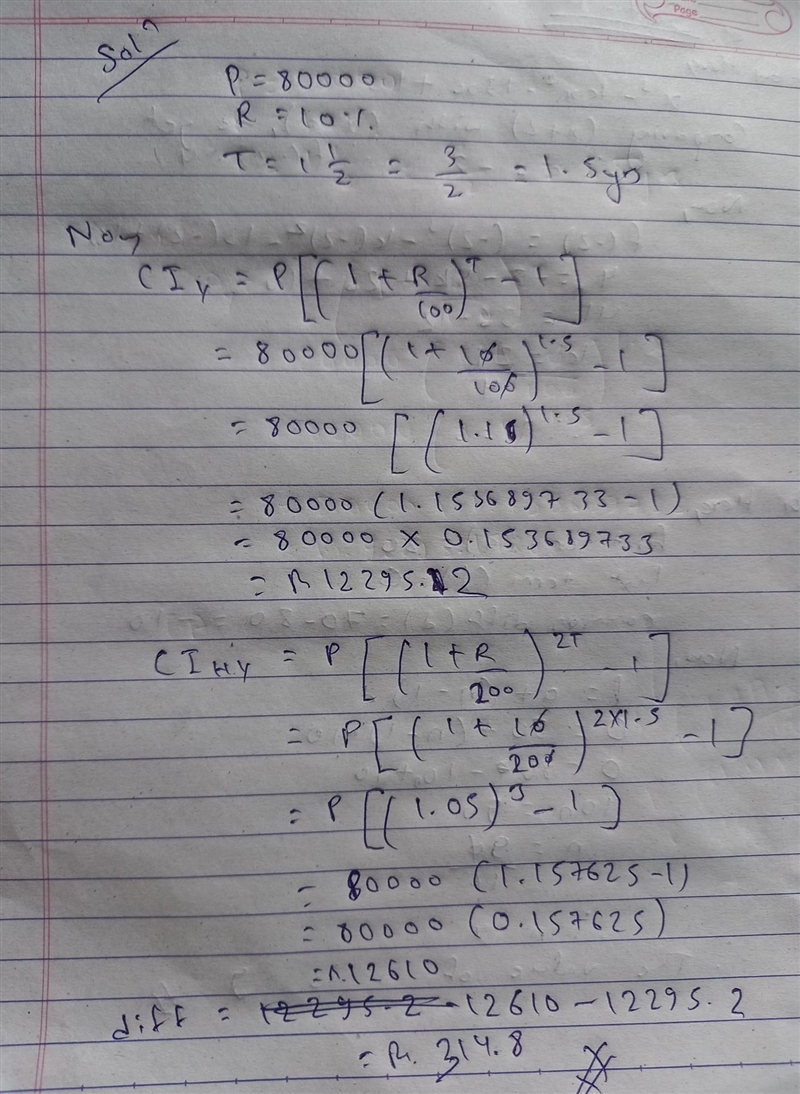 Page
Solⁿ
P = 80000
R = 10%
T = 1 1/2 = 3/2 = 1.5 yrs
Now
CI_Y = P[(1 + R/100)^T - 1]
= 80000[(1 + 10/100)^1.5 - 1]
= 80000 [(1.1)^1.5 - 1]
= 80000 (1.153689733 - 1)
= 80000 × 0.153689733
= Rs 12295.2
CI_HY = P[(1 + R/200)^2T - 1]
= P[(1 + 10/200)^2×1.5 - 1]
= P[(1.05)^3 - 1]
= 80000 (1.157625-1)
= 80000 (0.157625)
= Rs.12610
diff = 12295.2 - 12610 - 12295.2
= Rs. 314.8